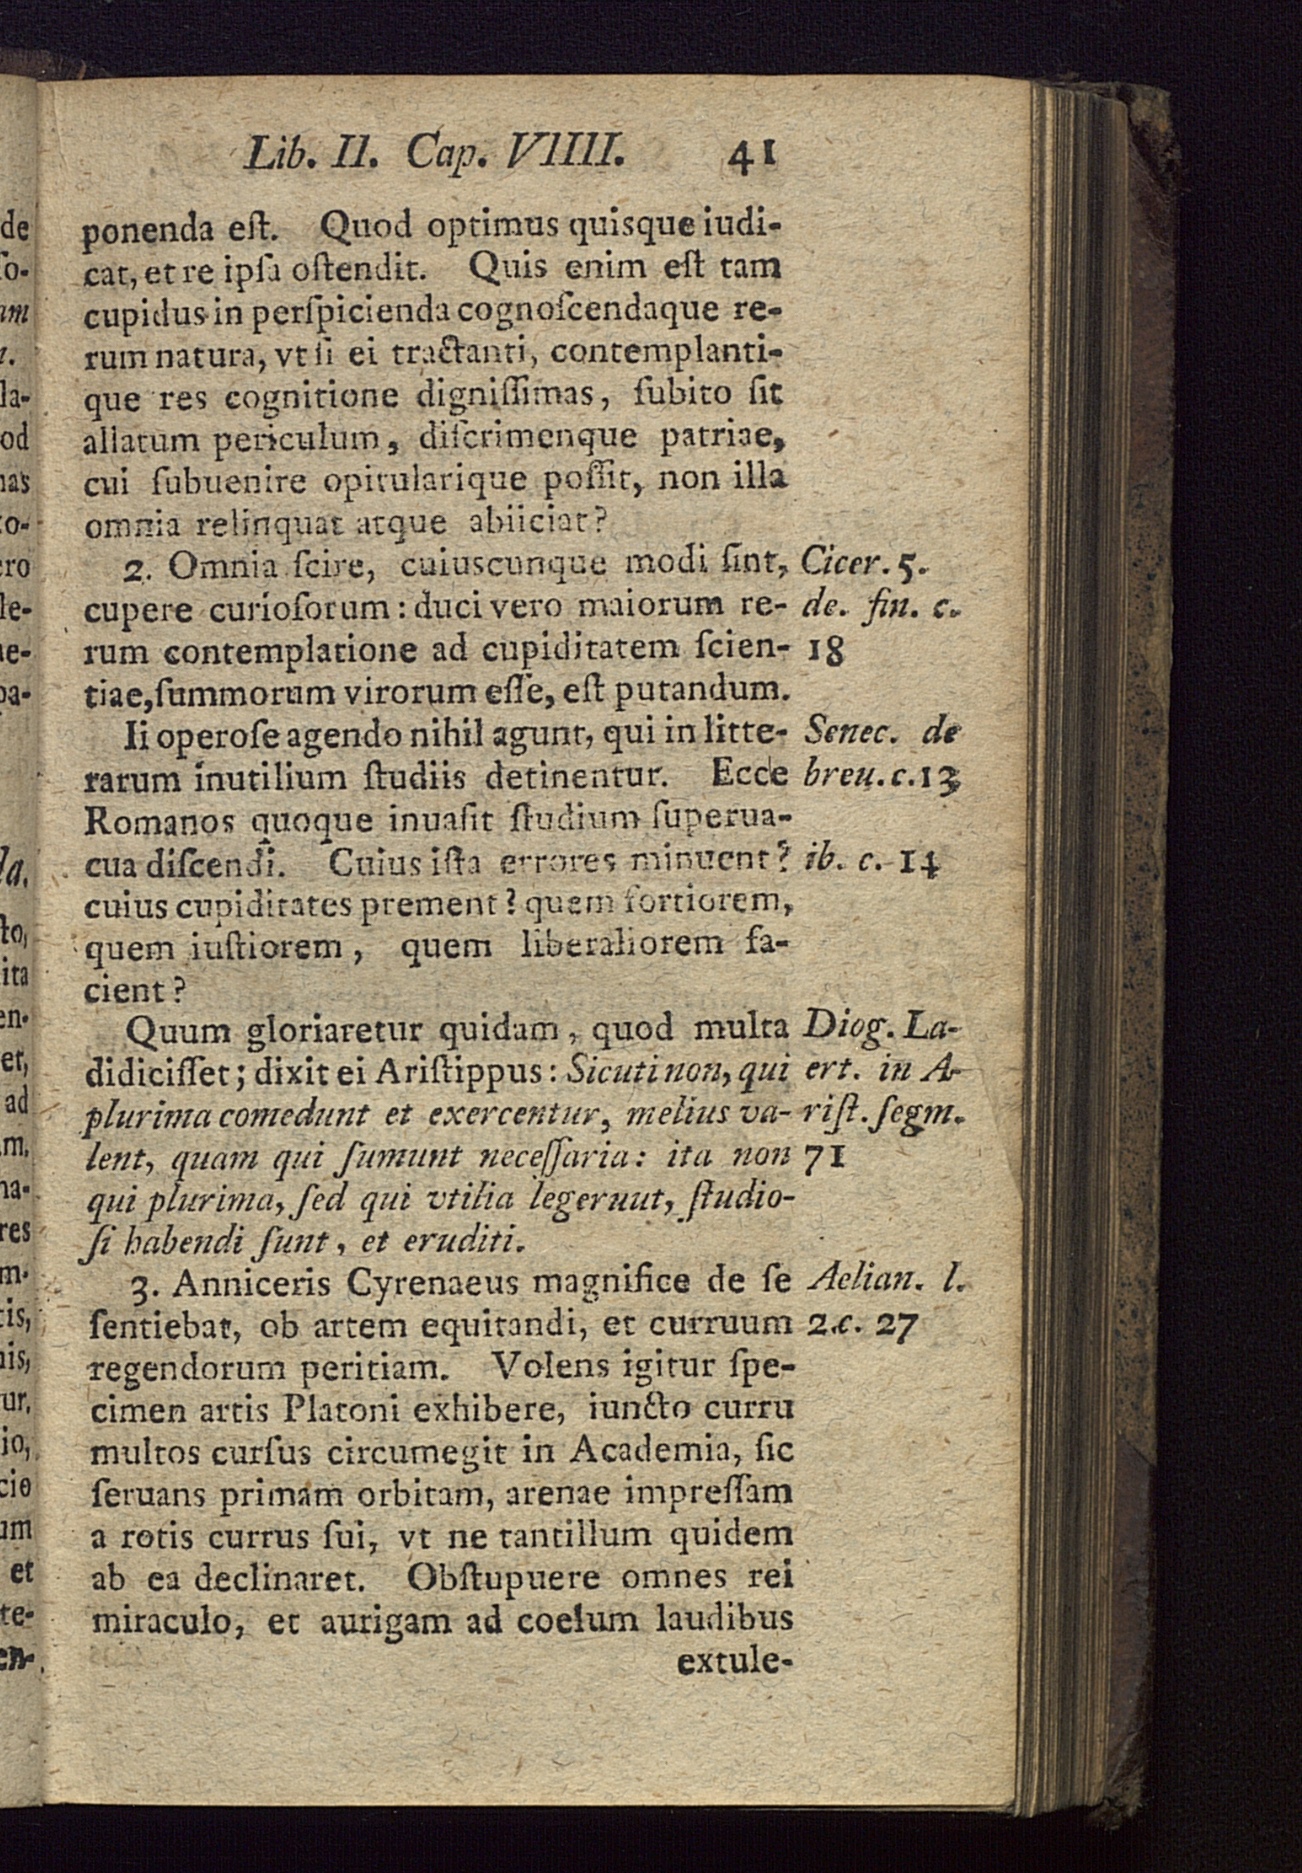 Lib. II. Cap. VIIII. 41
ponenda eſt. Quod optimus quisque iudi-
cat, et re ipſa oſtendit. Quis enim eſt tam
cupidus in perſpicienda cognoſcendaque re-
rum natura, vt ſi ei tractanti, contemplanti-
que res cognitione digniſſimas, ſubito ſit
allatum periculum, diſcrimenque patriae,
cui ſubuenire opitularique poſſit, non illa
omnia relinquat atque abiiciat?
2. Omnia ſcire, cuiuscunque modi ſint, Cicer. 5.
cupere curioſorum: duci vero maiorum re- de. fin. c.
rum contemplatione ad cupiditatem ſcien- 18
tiae, ſummorum virorum eſſe, eſt putandum.
Ii operoſe agendo nihil agunt, qui in litte- Senec. de
rarum inutilium ſtudiis detinentur. Ecce breu. c. 13
Romanos quoque inuaſit ſtudium ſuperua-
cua diſcendi. Cuius iſta errores minuent? ib. c. 14
cuius cupiditates prement? quem fortiorem,
quem iuſtiorem, quem liberaliorem fa-
cient?
Quum gloriaretur quidam, quod multa Diog. La-
didiciſſet; dixit ei Ariſtippus: Sicuti non, qui ert. in A-
plurima comedunt et exercentur, melius va- riſt. ſegm.
lent, quam qui ſumunt neceſſaria: ita non 71
qui plurima, ſed qui vtilia legeruut, ſtudio-
ſi habendi ſunt, et eruditi.
3. Anniceris Cyrenaeus magnifice de ſe Aelian. l.
ſentiebat, ob artem equitandi, et curruum 2. c. 27
regendorum peritiam. Volens igitur ſpe-
cimen artis Platoni exhibere, iuncto curru
multos curſus circumegit in Academia, ſic
ſeruans primam orbitam, arenae impreſſam
a rotis currus ſui, vt ne tantillum quidem
ab ea declinaret. Obſtupuere omnes rei
miraculo, et aurigam ad coelum laudibus
extule-